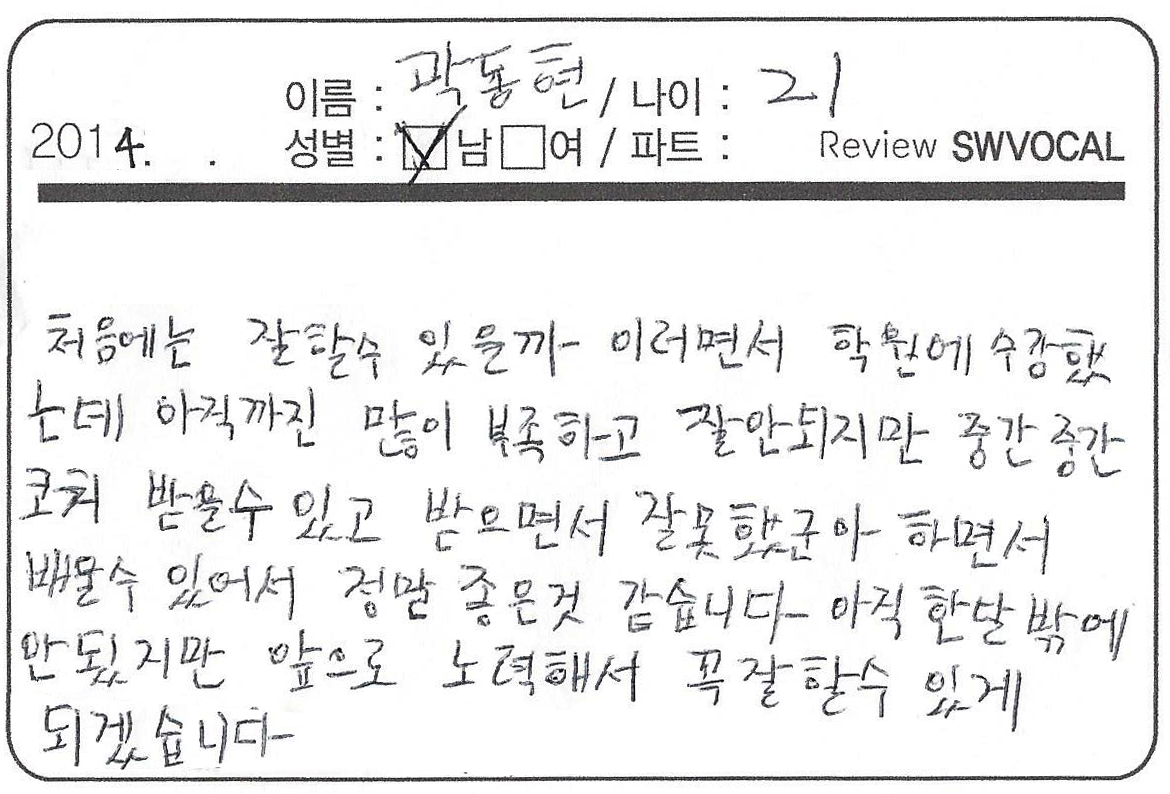 이름 : 곽동현 / 나이 : 21
2014. . 성별 : 남 여 / 파트 : Review SWVOCAL
처음에는 잘할수 있을까 이러면서 학원에 수강했
는데 아직까진 많이 부족하고 잘안되지만 중간중간
코치 받을수 있고 받으면서 잘못했군아 하면서
배울수 있어서 정말 좋은것 같습니다 아직 한달밖에
안됬지만 앞으로 노력해서 꼭잘할수 있게
되겠습니다